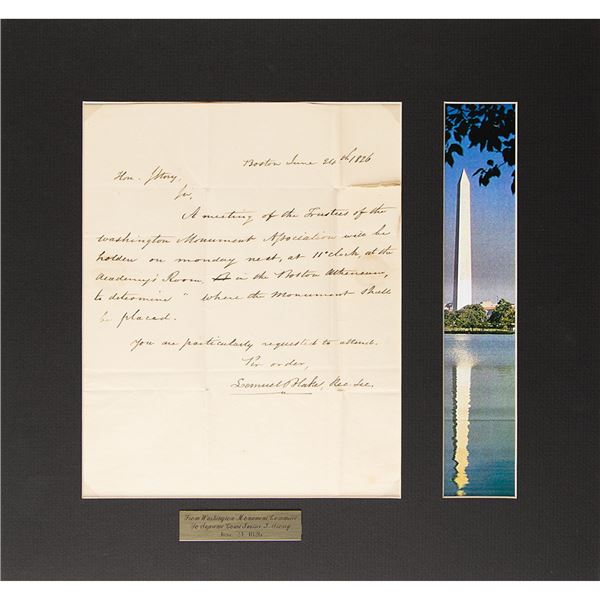 Boston June 24th 1826
Hon. J Story,
Sir,
A meeting of the Trustees of the
Washington Monument Association will be
holden on monday next, at 11 o'clock, at the
Academy's Room in the Boston Atheneum,
to determine "where the Monument shall
be placed.
You are particularly requested to attend.
Per order,
Lemuel Blake, Rec. Sec.
From Washington Monument Committee
To Supreme Court Justice J. Story
June 24 1826